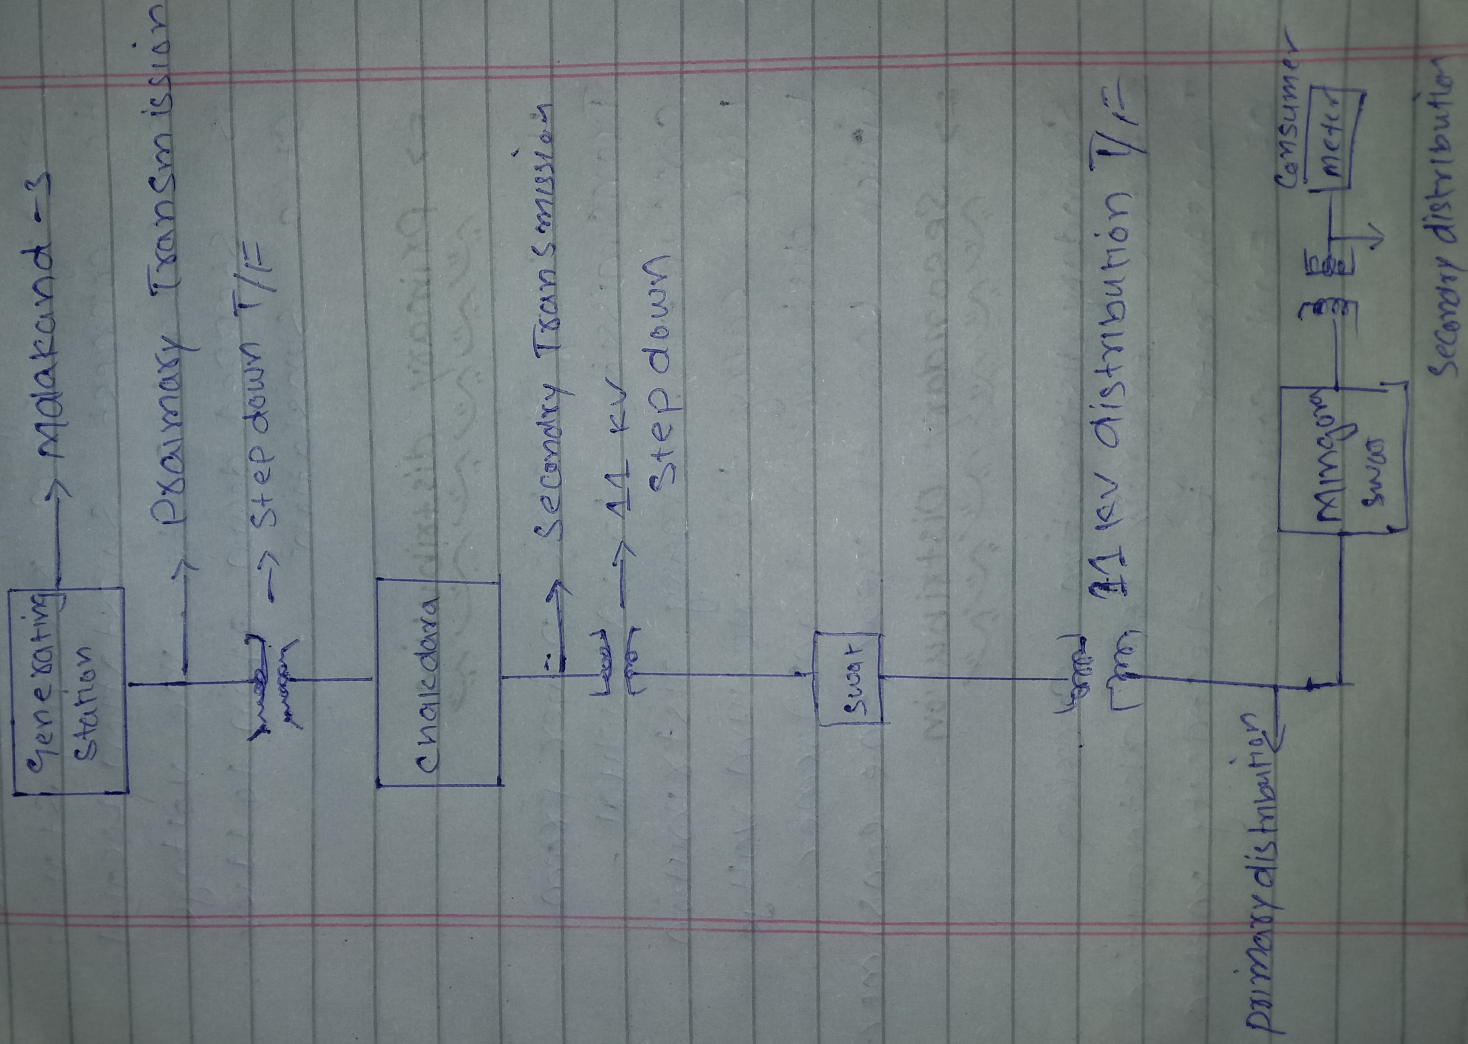 Generating
Station
Malakand - 3
Praimary Transmission
Step down T/F
Chakdara
Secondry Transmission
11 KV
Step down
Swat
11 KV distribution T/F
primary distribution
Mingora
swat
Consumer
meter
Secondry distribution